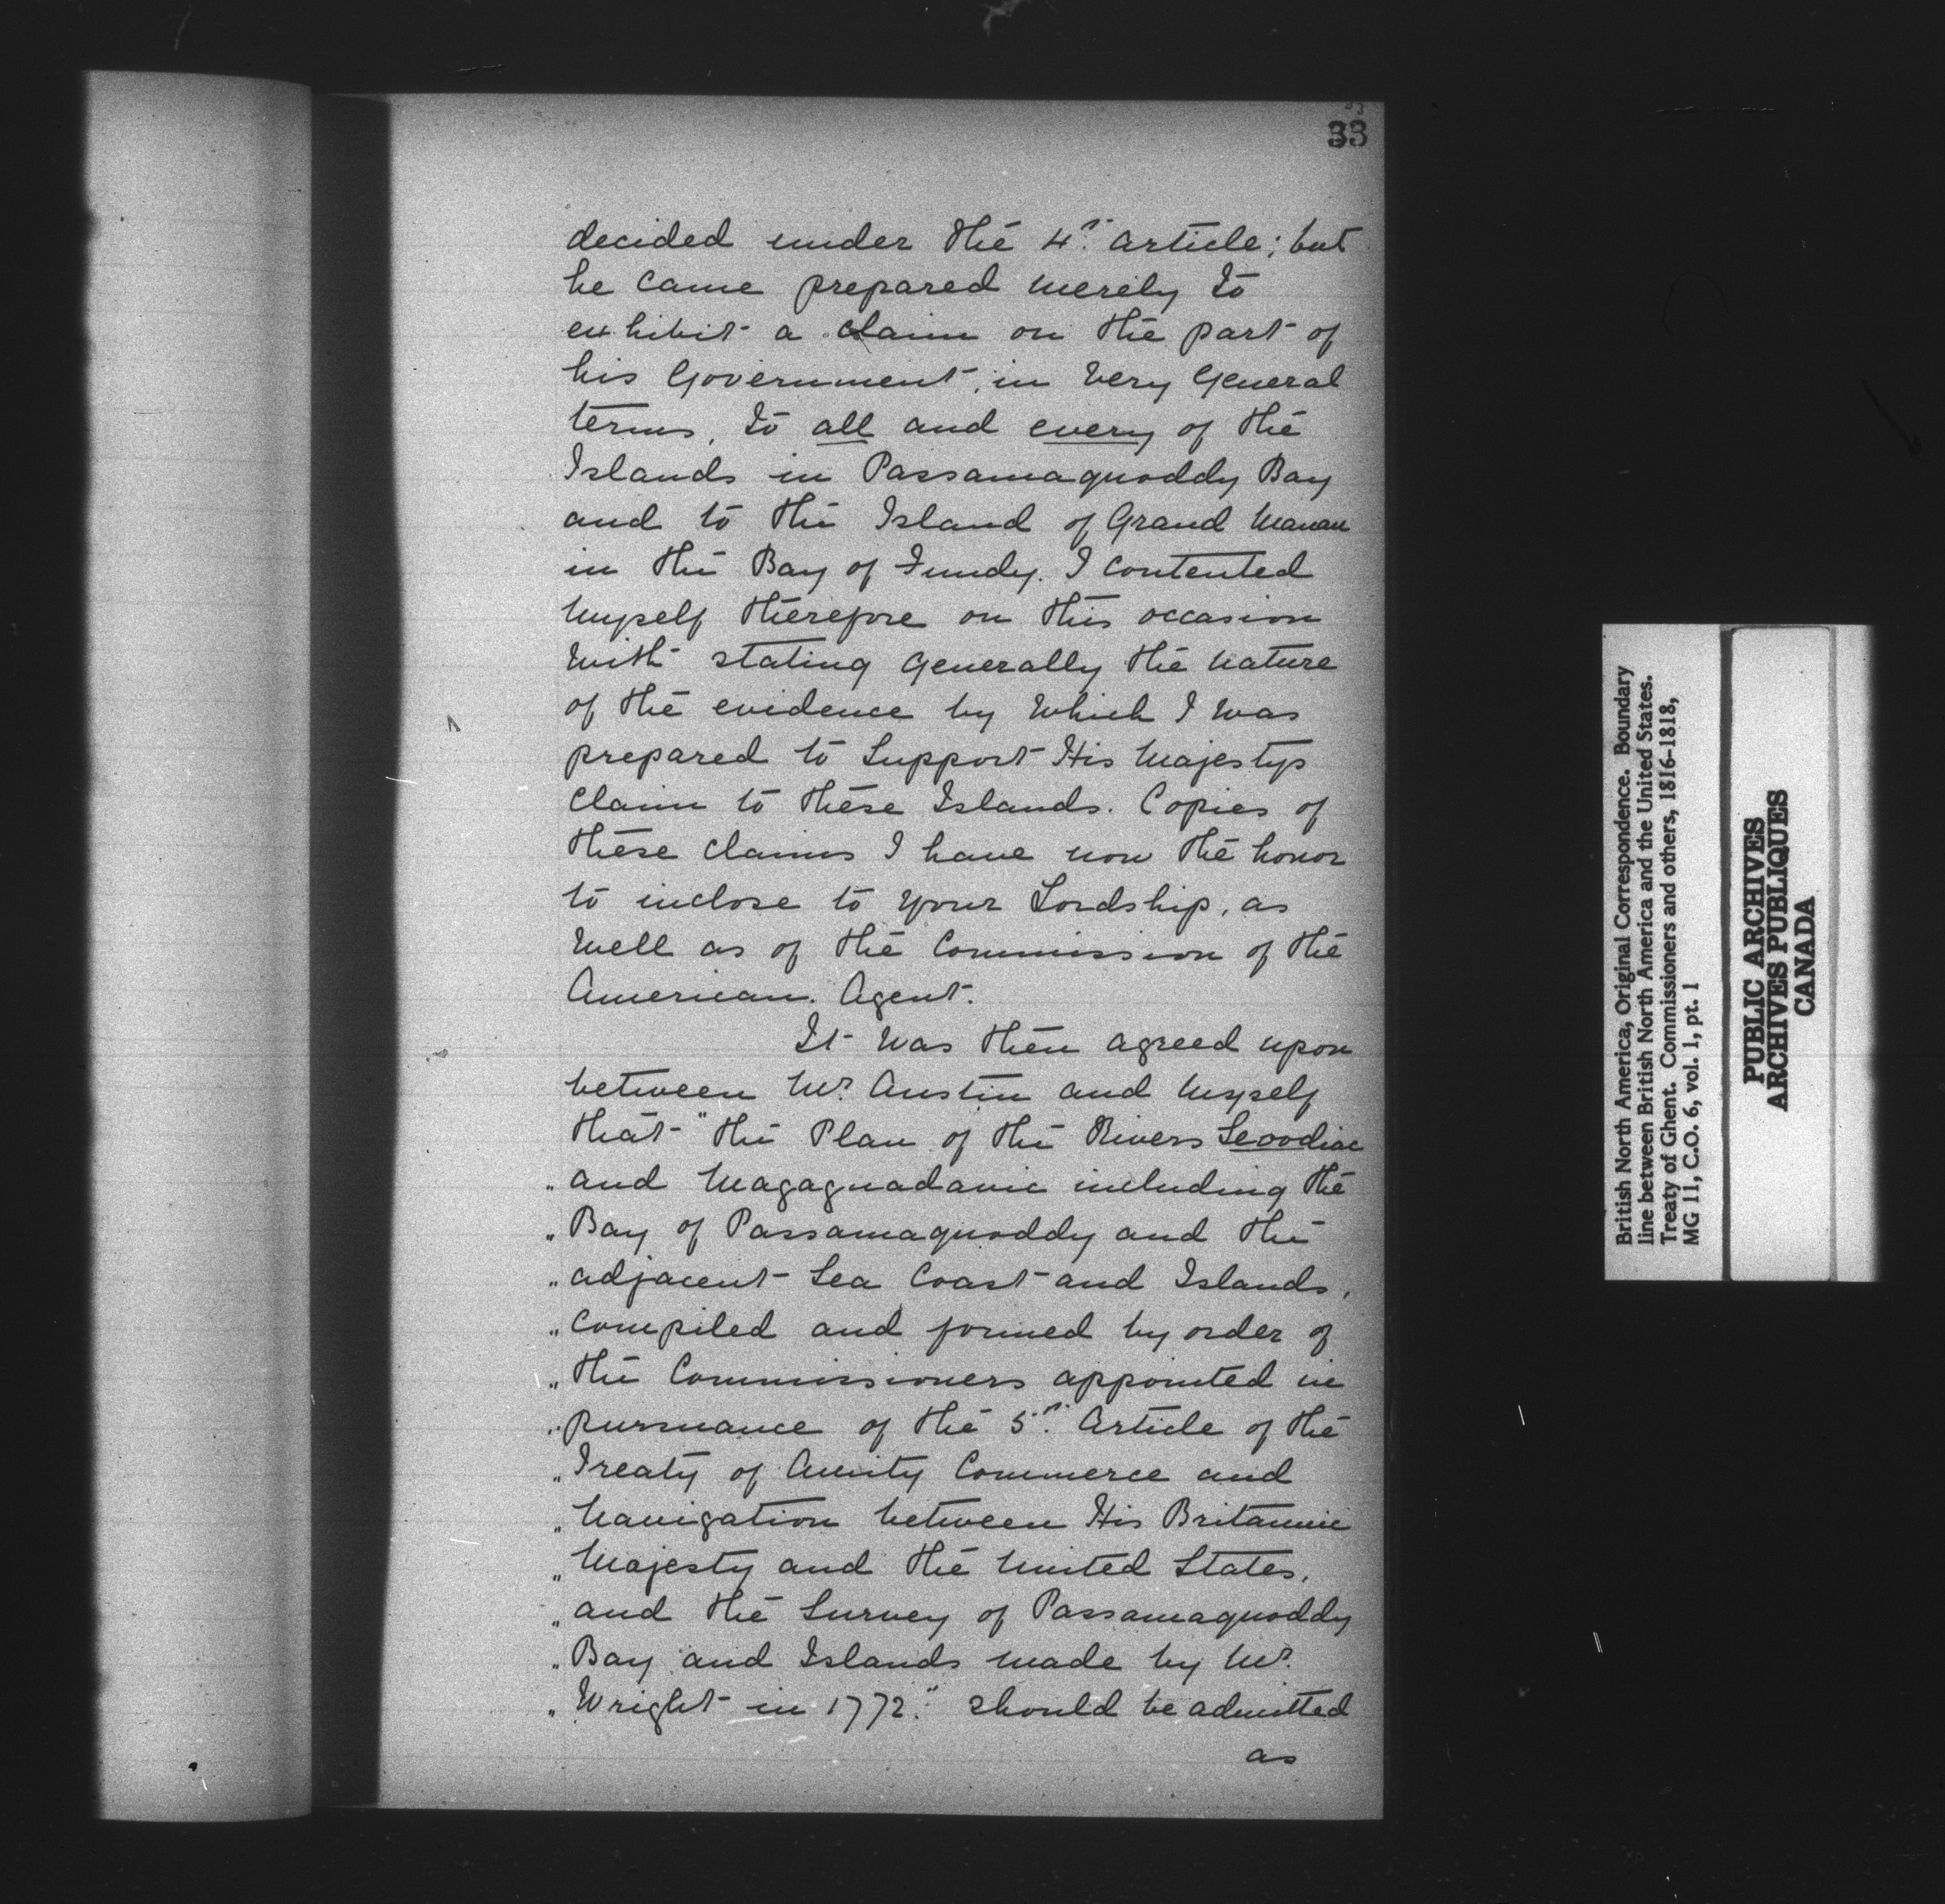 33
decided under the 4th. article; but
he came prepared merely to
exhibit a claim on the part of
his Government, in very general
terms, to all and every of the
Islands in Passamaquoddy Bay
and to the Island of Grand Manan
in the Bay of Fundy. I contented
myself therefore on this occasion
with stating generally the nature
of the evidence by which I was
prepared to support His Majestys
claim to these Islands. Copies of
these claims I have now the honor
to inclose to your Lordship, as
well as of the Commission of the
American Agent.
It was then agreed upon
between Mr. Austin and myself
that "the Plan of the Rivers Scoodiac
" and Magaguadavic including the
" Bay of Passamaquoddy and the
" adjacent Sea Coast and Islands,
" compiled and formed by order of
" the Commissioners appointed in
" pursuance of the 5th. Article of the
" Treaty of Amity Commerce and
" Navigation between His Britannic
" Majesty and the United States,
" and the Survey of Passamaquoddy
" Bay and Islands made by Mr.
" Wright in 1772." should be admitted
as
British North America, Original Correspondence. Boundary
line between British North America and the United States.
Treaty of Ghent. Commissioners and others, 1816-1818,
MG 11, C.O. 6, vol. 1, pt. 1
PUBLIC ARCHIVES
ARCHIVES PUBLIQUES
CANADA